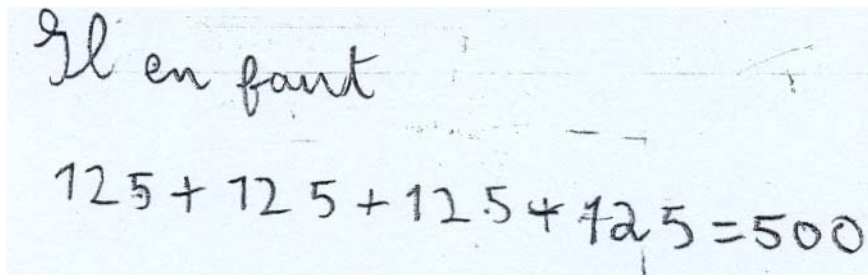 Il en faut
125 + 125 + 125 + 125 = 500